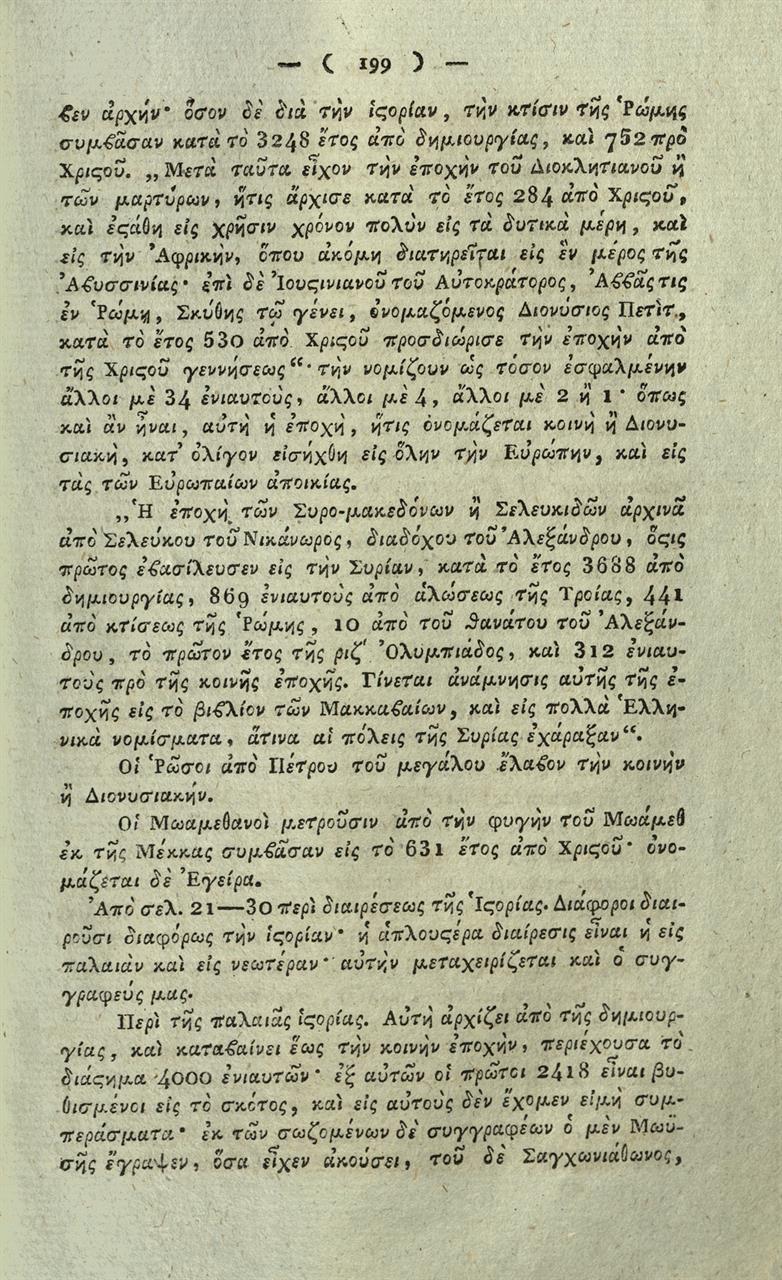 — ( 199 ) —
βεν ἀρχήν· ὅσον δὲ διὰ τὴν ἱϛορίαν, τὴν κτίσιν τῆς Ῥώμης
συμβᾶσαν κατὰ τὸ 3248 ἔτος ἀπὸ δημιουργίας, καὶ 752 πρὸ
Χριϛοῦ. „Μετὰ ταῦτα εἶχον τὴν ἐποχὴν τοῦ Διοκλητιανοῦ ἢ
τῶν μαρτύρων, ἥτις ἄρχισε κατὰ τὸ ἔτος 284 ἀπὸ Χριϛοῦ,
καὶ ἐϛάθη εἰς χρῆσιν χρόνον πολὺν εἰς τὰ δυτικὰ μέρη, καὶ
εἰς τὴν Ἀφρικὴν, ὅπου ἀκόμη διατηρεῖται εἰς ἓν μέρος τῆς
Ἀβυσσινίας· ἐπὶ δὲ Ἰουϛινιανοῦ τοῦ Αὐτοκράτορος, Ἀββᾶς τις
ἐν Ῥώμῃ, Σκύθης τῷ γένει, ὀνομαζόμενος Διονύσιος Πετὶτ,
κατὰ τὸ ἔτος 530 ἀπὸ Χριϛοῦ προσδιώρισε τὴν ἐποχὴν ἀπὸ
τῆς Χριϛοῦ γεννήσεως“· τὴν νομίζουν ὡς τόσον ἐσφαλμένην
ἄλλοι μὲ 34 ἐνιαυτοὺς, ἄλλοι μὲ 4, ἄλλοι μὲ 2 ἢ 1· ὅπως
καὶ ἂν ᾖναι, αὐτὴ ἡ ἐποχὴ, ἥτις ὀνομάζεται κοινὴ ἢ Διονυ-
σιακὴ, κατ᾽ ὀλίγον εἰσήχθη εἰς ὅλην τὴν Εὐρώπην, καὶ εἰς
τὰς τῶν Εὐρωπαίων ἀποικίας.
„Ἡ ἐποχὴ τῶν Συρο-μακεδόνων ἢ Σελευκιδῶν ἀρχινᾶ
ἀπὸ Σελεύκου τοῦ Νικάνωρος, διαδόχου τοῦ Ἀλεξάνδρου, ὅϛις
πρῶτος ἐβασίλευσεν εἰς τὴν Συρίαν, κατὰ τὸ ἔτος 3688 ἀπὸ
δημιουργίας, 869 ἐνιαυτοὺς ἀπὸ ἁλώσεως τῆς Τροίας, 441
ἀπὸ κτίσεως τῆς Ῥώμης, 10 ἀπὸ τοῦ θανάτου τοῦ Ἀλεξάν-
δρου, τὸ πρῶτον ἔτος τῆς ριζʹ Ὀλυμπιάδος, καὶ 312 ἐνιαυ-
τοὺς πρὸ τῆς κοινῆς ἐποχῆς. Γίνεται ἀνάμνησις αὐτῆς τῆς ἐ-
ποχῆς εἰς τὸ βιβλίον τῶν Μακκαβαίων, καὶ εἰς πολλὰ Ἑλλη-
νικὰ νομίσματα, ἅτινα αἱ πόλεις τῆς Συρίας ἐχάραξαν“.
Οἱ Ῥῶσοι ἀπὸ Πέτρου τοῦ μεγάλου ἔλαβον τὴν κοινὴν
ἢ Διονυσιακήν.
Οἱ Μωαμεθανοὶ μετροῦσιν ἀπὸ τὴν φυγὴν τοῦ Μωάμεθ
ἐκ τῆς Μέκκας συμβᾶσαν εἰς τὸ 631 ἔτος ἀπὸ Χριϛοῦ· ὀνο-
μάζεται δὲ Ἐγείρα.
Ἀπὸ σελ. 21—30 περὶ διαιρέσεως τῆς Ἱϛορίας. Διάφοροι διαι-
ροῦσι διαφόρως τὴν ἱϛορίαν· ἡ ἁπλουϛέρα διαίρεσις εἶναι ἡ εἰς
παλαιὰν καὶ εἰς νεωτέραν· αὐτὴν μεταχειρίζεται καὶ ὁ συγ-
γραφεύς μας.
Περὶ τῆς παλαιᾶς ἱϛορίας. Αὐτὴ ἀρχίζει ἀπὸ τῆς δημιουρ-
γίας, καὶ καταβαίνει ἕως τὴν κοινὴν ἐποχὴν, περιέχουσα τὸ
διάϛημα 4000 ἐνιαυτῶν· ἐξ αὐτῶν οἱ πρῶτοι 2418 εἶναι βυ-
θισμένοι εἰς τὸ σκότος, καὶ εἰς αὐτοὺς δὲν ἔχομεν εἰμὴ συμ-
περάσματα· ἐκ τῶν σωζομένων δὲ συγγραφέων ὁ μὲν Μωϋ-
σῆς ἔγραψεν, ὅσα εἶχεν ἀκούσει, τοῦ δὲ Σαγχωνιάθωνος,